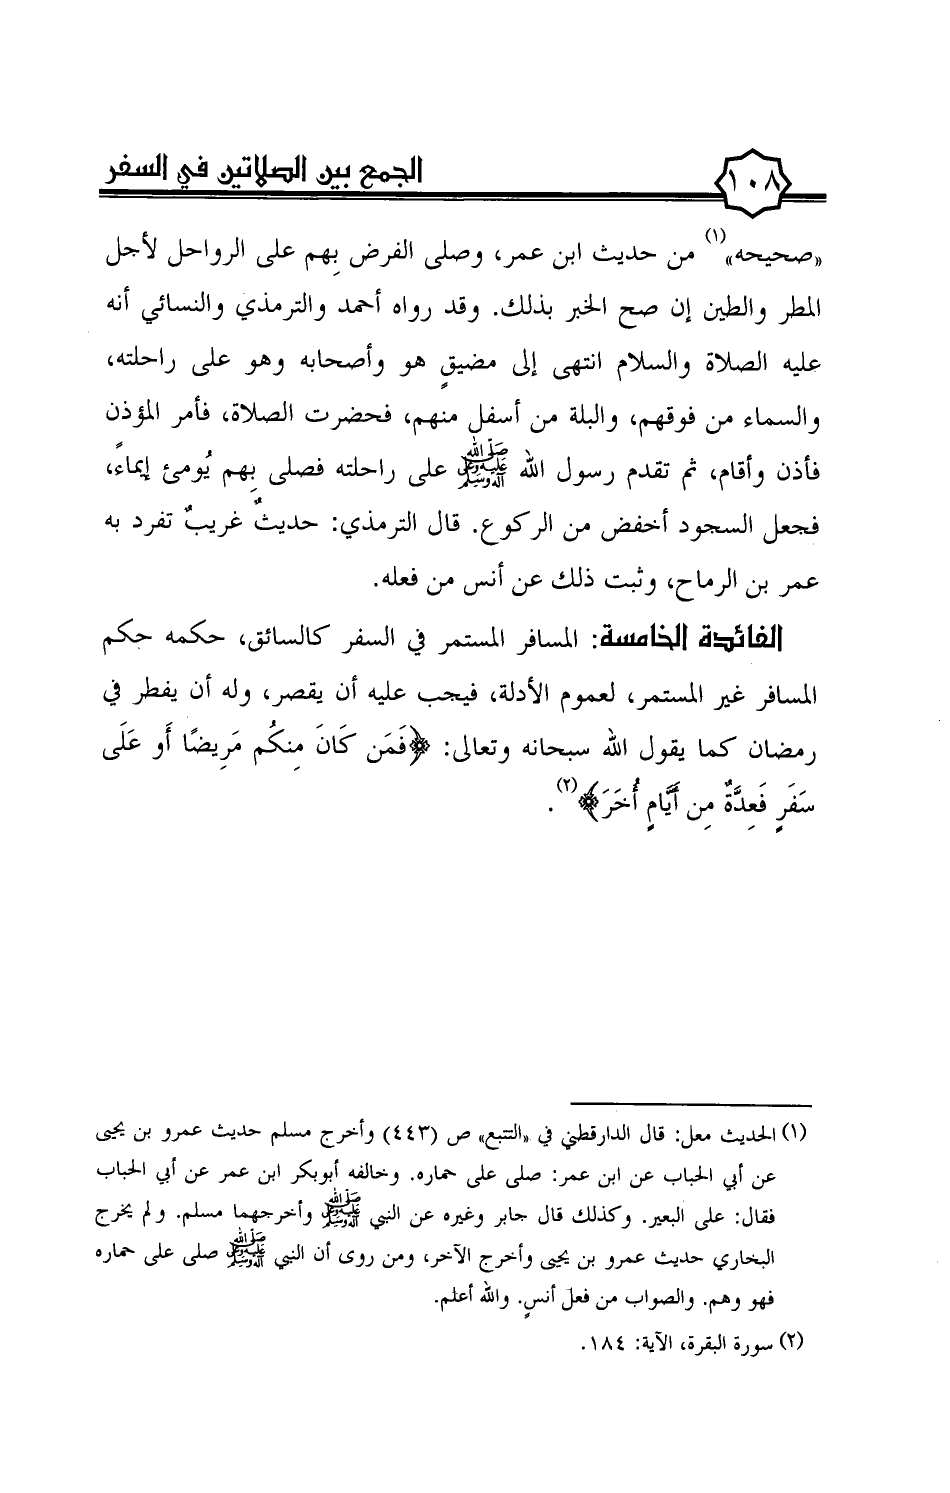 ١٠٨
الجمع بين الصلاتين في السفر
«صحيحه»(١) من حديث ابن عمر، وصلى الفرض بهم على الرواحل لأجل
المطر والطين إن صح الخبر بذلك. وقد رواه أحمد والترمذي والنسائي أنه
عليه الصلاة والسلام انتهى إلى مضيقٍ هو وأصحابه وهو على راحلته،
والسماء من فوقهم، والبلة من أسفل منهم، فحضرت الصلاة، فأمر المؤذن
فأذن وأقام، ثم تقدم رسول الله ﷺ على راحلته فصلى بهم يُومئ إيماءً،
فجعل السجود أخفض من الركوع. قال الترمذي: حديثٌ غريبٌ تفرد به
عمر بن الرماح، وثبت ذلك عن أنس من فعله.
الفائدة الخامسة: المسافر المستمر في السفر كالسائق، حكمه حكم
المسافر غير المستمر، لعموم الأدلة، فيجب عليه أن يقصر، وله أن يفطر في
رمضان كما يقول الله سبحانه وتعالى: ﴿فَمَن كَانَ مِنكُم مَرِيضًا أَو عَلَى
سَفَرٍ فَعِدَّةٌ مِن أَيَّامٍ أُخَرَ﴾(٢).
(١) الحديث معل: قال الدارقطني في «التتبع» ص (٤٤٣) وأخرج مسلم حديث عمرو بن يحيى
عن أبي الحباب عن ابن عمر: صلى على حماره. وخالفه أبوبكر ابن عمر عن أبي الحباب
فقال: على البعير. وكذلك قال جابر وغيره عن النبي ﷺ وأخرجهما مسلم. ولم يخرج
البخاري حديث عمرو بن يحيى وأخرج الآخر، ومن روى أن النبي ﷺ صلى على حماره
فهو وهم. والصواب من فعل أنسٍ. والله أعلم.
(٢) سورة البقرة، الآية: ١٨٤.